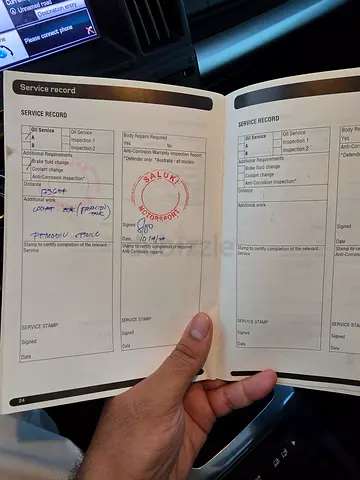 Unnamed road
Destination entry
Please connect phone
Service record
SERVICE RECORD
Oil Service
A
B
Oil Service
Inspection 1
Inspection 2
Additional Requirements
Brake fluid change
Coolant change
Anti-Corrosion inspection*
Distance
Additional work
PERIODIC SERVICE
Stamp to certify completion of the relevant
Service
SERVICE STAMP
Signed
Date
24
Body Repairs Required
Yes
No
Anti-Corrosion Warranty Inspection Report
*Defender only. *Australia - all models
SALUKI
MOTORSPORT
Signed
Date
Stamp to certify completion of required
Anti-Corrosion repairs
SERVICE STAMP
Signed
Date
SERVICE RECORD
Oil Service
A
B
Oil Service
Inspection 1
Inspection 2
Additional Requirements
Brake fluid change
Coolant change
Anti-Corrosion inspection*
Distance
Additional work
Stamp to certify completion of the relevant
Service
SERVICE STAMP
Signed
Date
Body
Yes
Anti-Corrosion
*Defender
Signed
Date
Stamp to
Anti-Corrosion
SERVICE
Signed
Date